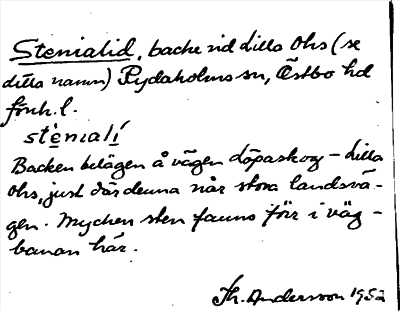 Stenialid, backe vid Lilla Ohs (se
detta namn) Rydaholms sn, Östbo hd
Jönk. l.
stenialí
Backen belägen å vägen Löpaskog - Lilla
Ohs, just där denna når stora landsvä-
gen. Mycken sten fanns förr i väg-
banan här.
Th. Andersson 1952